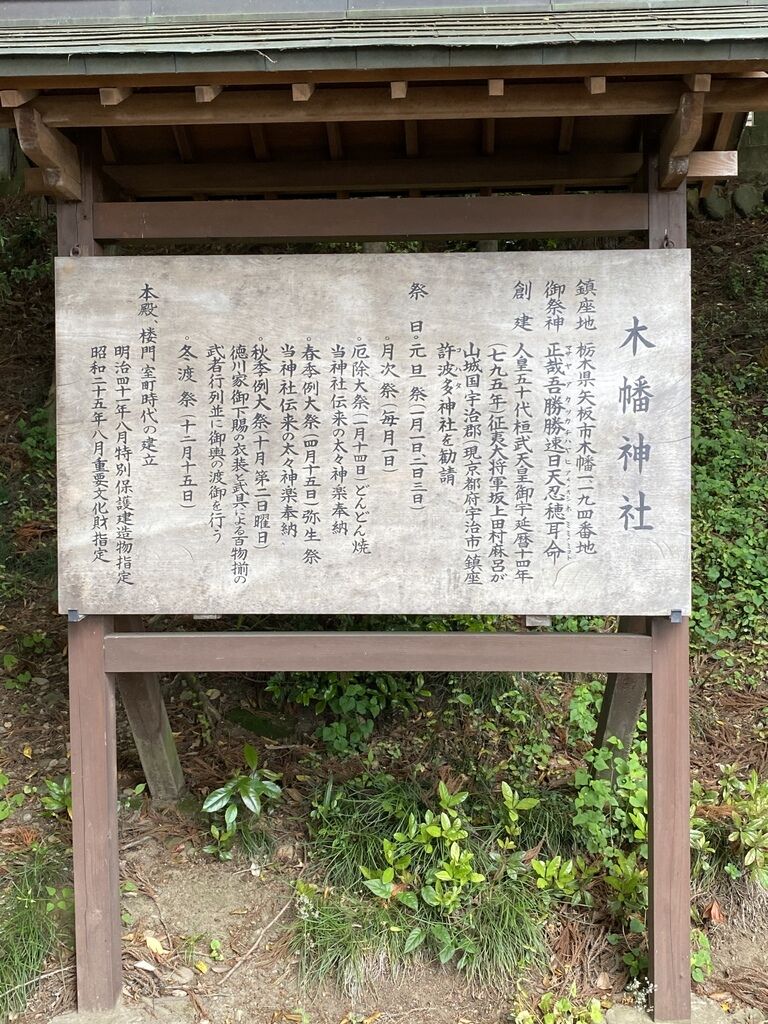 木幡神社
鎮座地 栃木県矢板市木幡一、一九四番地
御祭神 正哉吾勝勝速日天忍穂耳命
マサヤアカツカチハヤヒアメノオシホミミノミコト
創建 人皇五十代桓武天皇御宇延暦十四年
(七九五年)征夷大将軍坂上田村麻呂が
山城国宇治郡(現京都府宇治市)鎮座
許波多神社を勧請
コハタ
祭日 ◦元旦祭(一月一日、二日、三日)
◦月次祭(毎月一日)
◦厄除大祭(一月十四日)どんどん焼
当神社伝来の太々神楽奉納
◦春季例大祭(四月十五日)弥生祭
当神社伝来の太々神楽奉納
◦秋季例大祭(十月第二日曜日)
徳川家御下賜の衣装と武具による百物揃の
武者行列並に御輿の渡御を行う
◦冬渡祭(十二月十五日)
本殿、楼門 室町時代の建立
明治四十一年八月特別保護建造物指定
昭和二十五年八月重要文化財指定